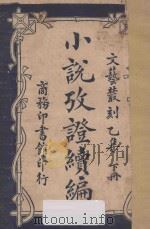 文藝叢刻乙集下冊
小說攷證續編
商務印書館印行